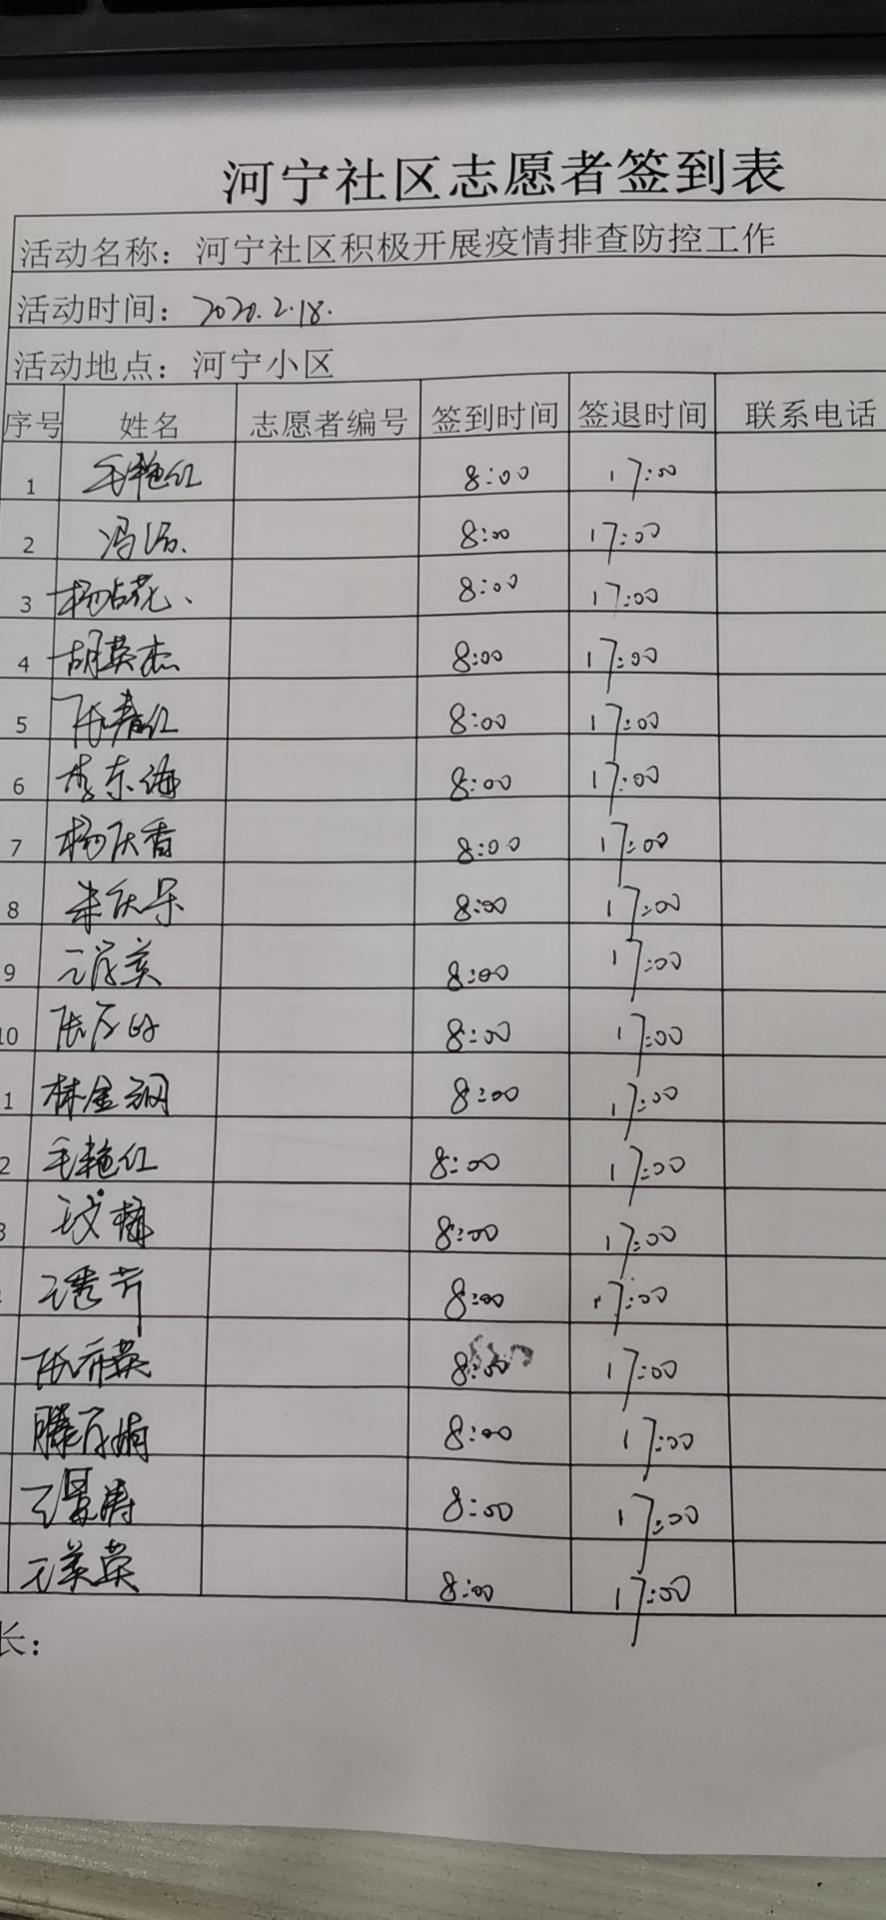 河宁社区志愿者签到表
活动名称：河宁社区积极开展疫情排查防控工作
活动时间：2020.2.18.
活动地点：河宁小区
序号 姓名 志愿者编号 签到时间 签退时间 联系电话
1 毛艳红 8:00 17:00
2 冯 8:00 17:00
3 杨占花、 8:00 17:00
4 胡英杰 8:00 17:00
5 张春红 8:00 17:00
6 李东海 8:00 17:00
7 杨庆香 8:00 17:00
8 8:00 17:00
9 8:00 17:00
10 张 8:00 17:00
1 林金钢 8:00 17:00
2 毛艳红 8:00 17:00
3 8:00 17:00
王秀芹 8:00 17:00
张 英 8:00 17:00
滕月娟 8:00 17:00
王景涛 8:00 17:00
王美英 8:00 17:00
长：